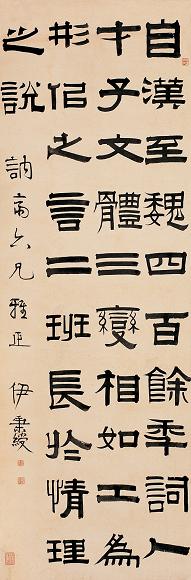 自漢至魏四百餘秊詞人
才子文體三變相如工為
形佀之言二班長於情理
之說
訥齋六兄雅正 伊秉綬